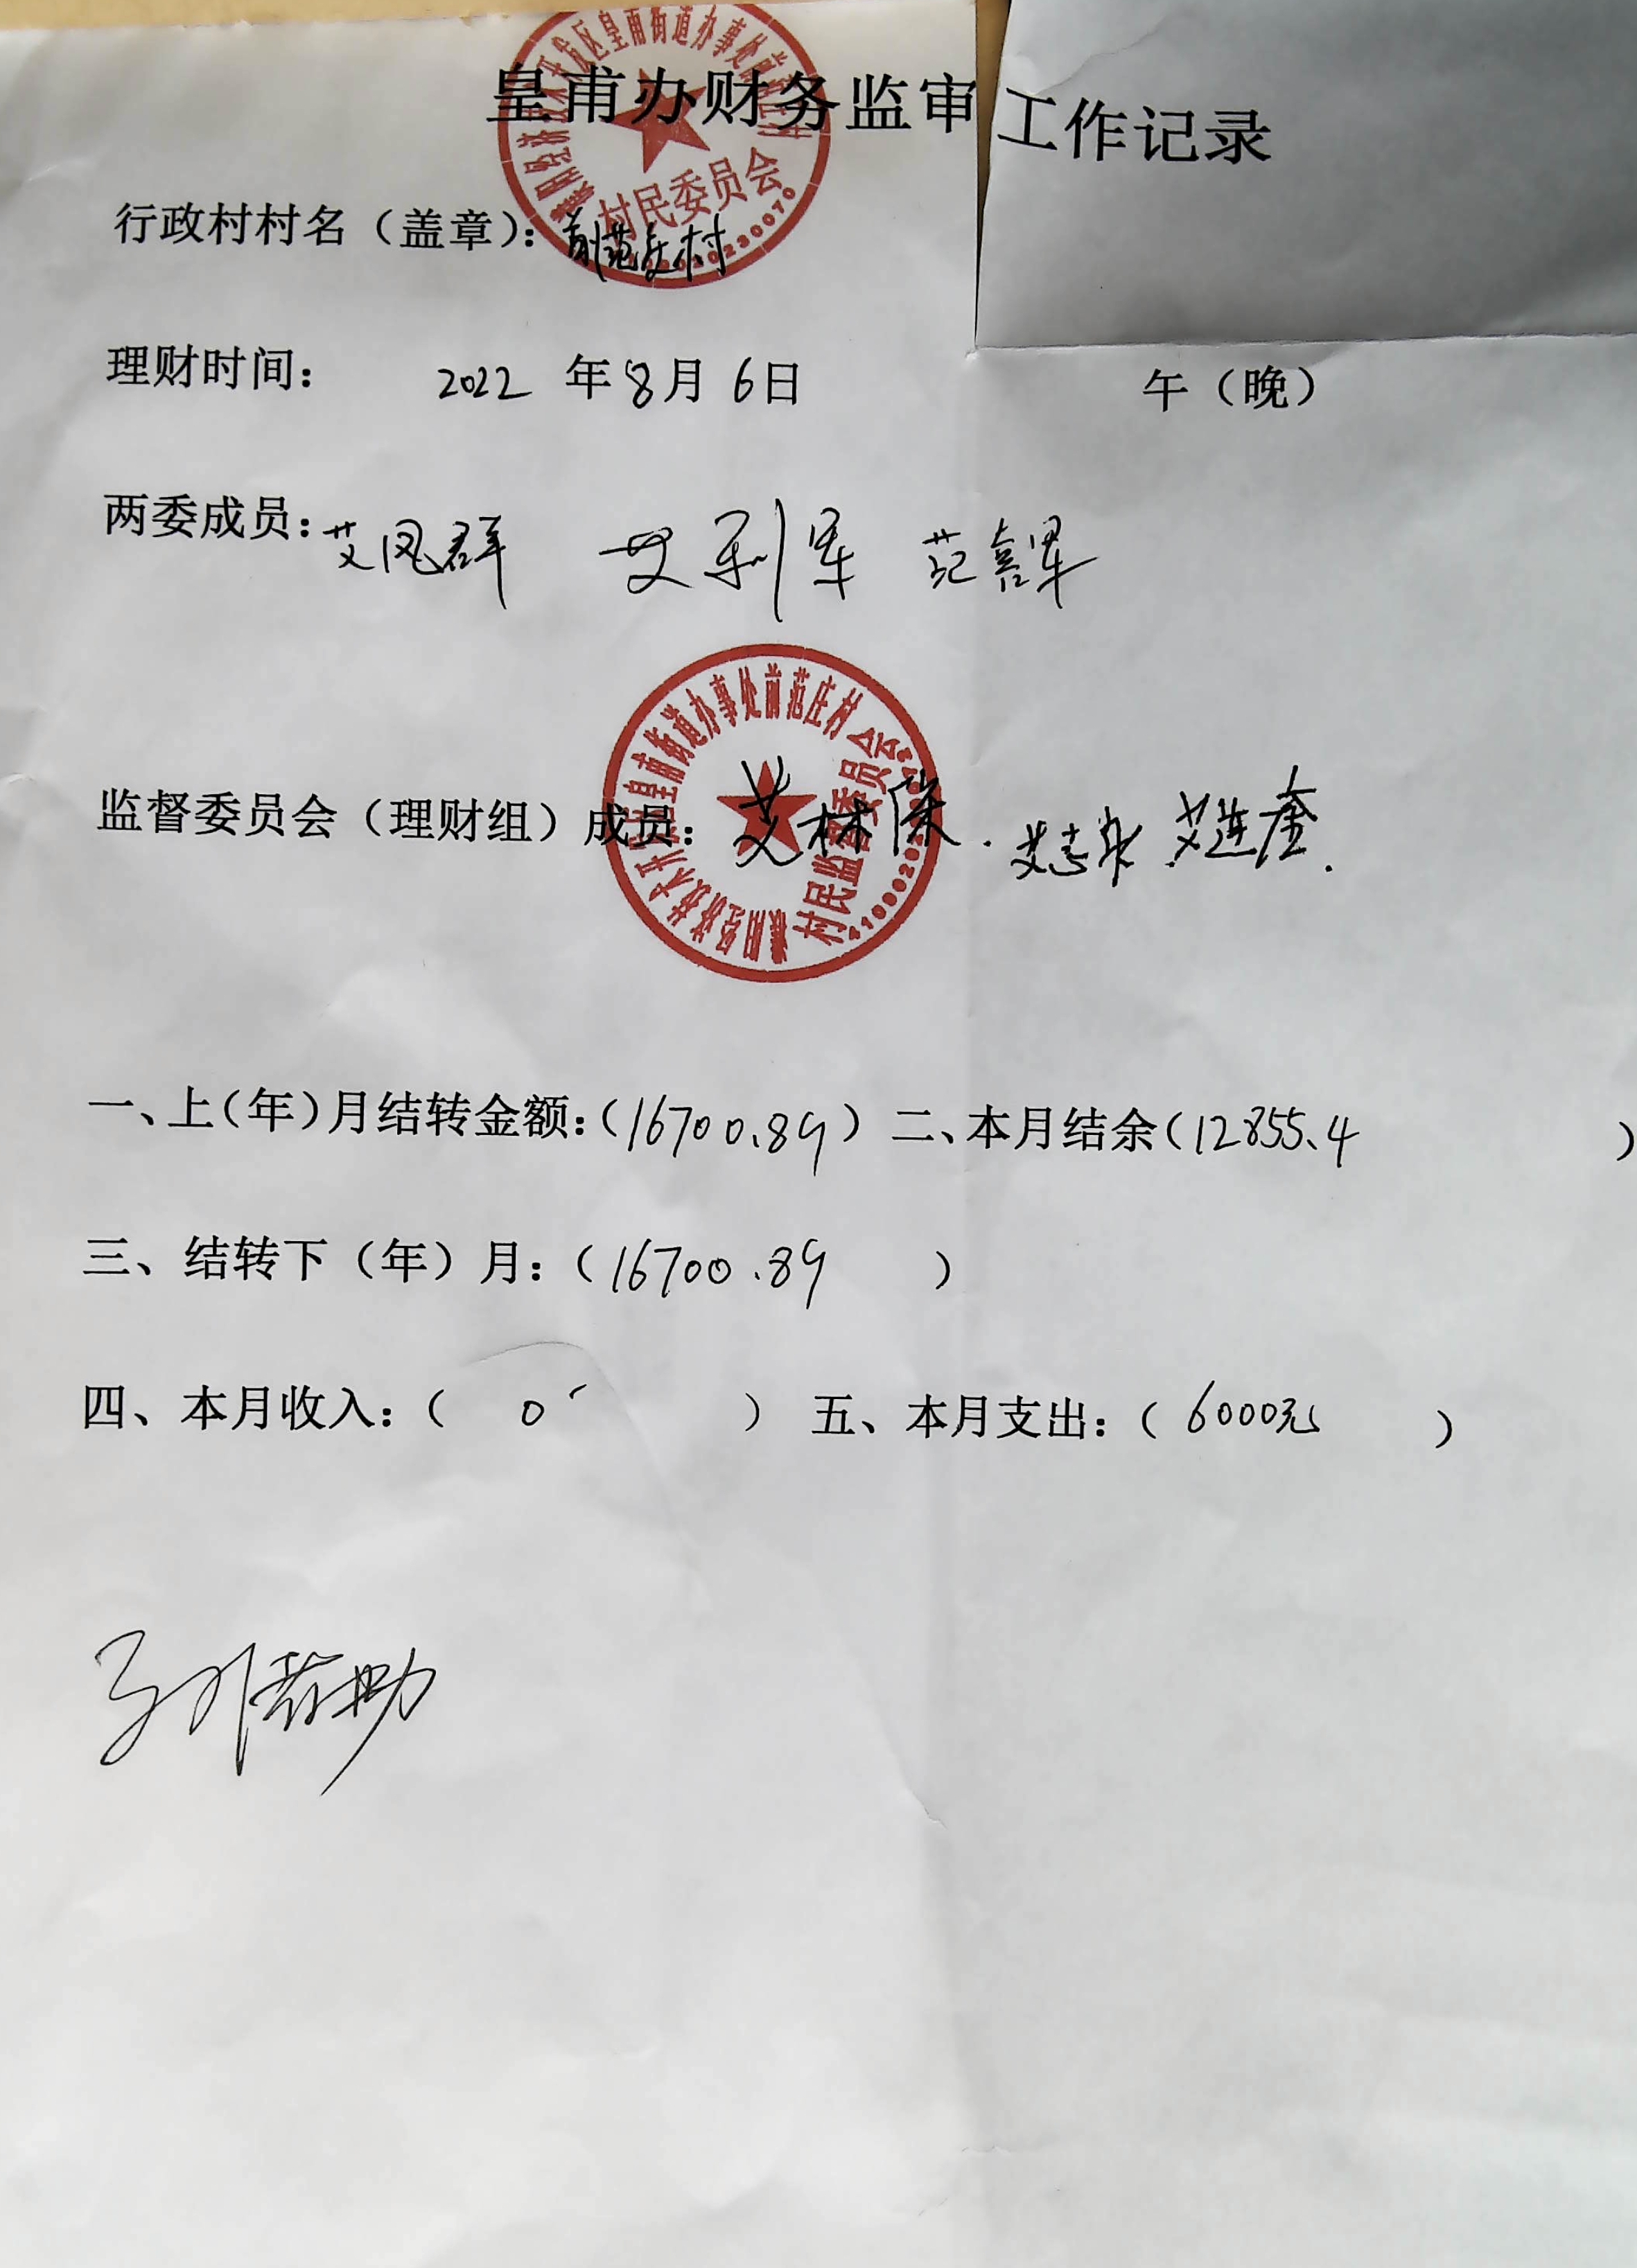 皇甫办财务监审工作记录
行政村村名（盖章）：前范庄村
村民委员会
理财时间： 2022 年 8月 6日 午（晚）
两委成员：艾凤群 艾利军 范喜军
皇甫街道办事处前范庄村
村民监督委员会
监督委员会（理财组）成员：艾林保. 艾志永 艾连奎.
一、上（年）月结转金额：（16700.89）二、本月结余（12855.4 ）
三、结转下（年）月：（16700.89 ）
四、本月收入：（ 0 ） 五、本月支出：（ 6000元 ）